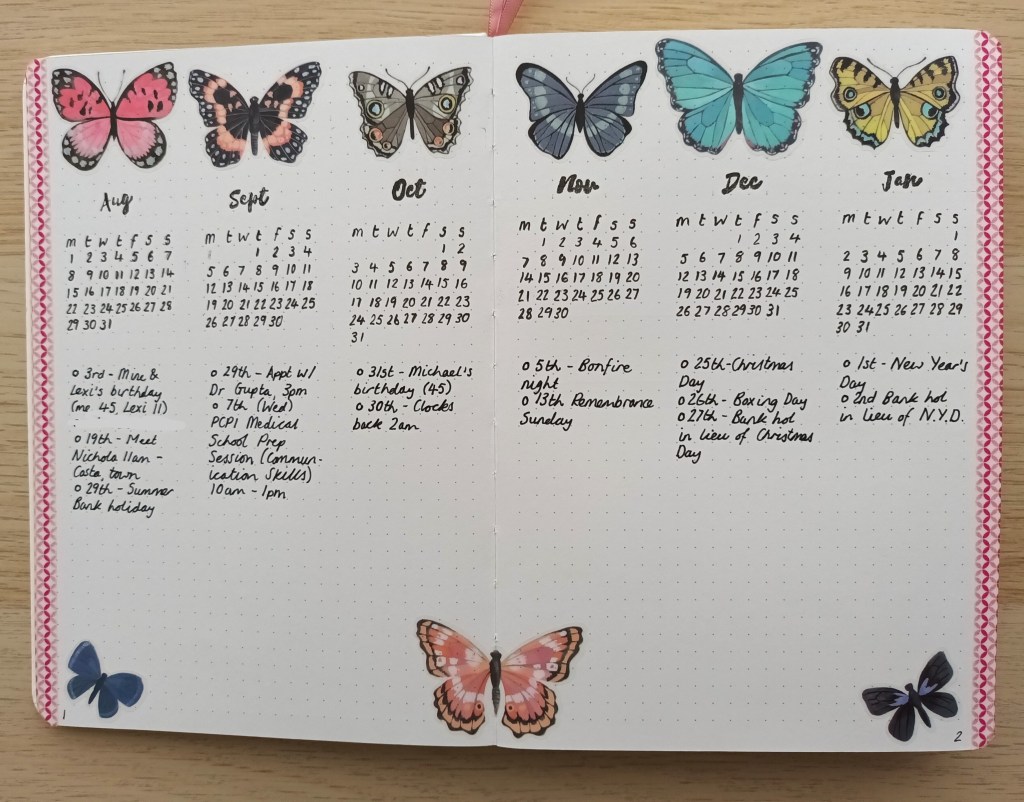 Aug
m t w t f s s
1 2 3 4 5 6 7
8 9 10 11 12 13 14
15 16 17 18 19 20 21
22 23 24 25 26 27 28
29 30 31
o 3rd - Mine &
Lexi's birthday
(me 45, Lexi 11)
o 19th - Meet
Nichola 11am -
Costa, town
o 29th - Summer
Bank holiday
Sept
m t w t f s s
1 2 3 4
5 6 7 8 9 10 11
12 13 14 15 16 17 18
19 20 21 22 23 24 25
26 27 28 29 30
o 29th - Appt w/
Dr Gupta, 3pm
o 7th (Wed)
PCPI Medical
School Prep
Session (Commun-
ication Skills)
10am - 1pm
Oct
m t w t f s s
1 2
3 4 5 6 7 8 9
10 11 12 13 14 15 16
17 18 19 20 21 22 23
24 25 26 27 28 29 30
31
o 31st - Michael's
birthday (45)
o 30th - Clocks
back 2am
1
Nov
m t w t f s s
1 2 3 4 5 6
7 8 9 10 11 12 13
14 15 16 17 18 19 20
21 22 23 24 25 26 27
28 29 30
o 5th - Bonfire
night
o 13th Remembrance
Sunday
Dec
m t w t f s s
1 2 3 4
5 6 7 8 9 10 11
12 13 14 15 16 17 18
19 20 21 22 23 24 25
26 27 28 29 30 31
o 25th - Christmas
Day
o 26th - Boxing Day
o 27th - Bank hol
in lieu of Christmas
Day
Jan
m t w t f s s
1
2 3 4 5 6 7 8
9 10 11 12 13 14 15
16 17 18 19 20 21 22
23 24 25 26 27 28 29
30 31
o 1st - New Year's
Day
o 2nd Bank hol
in lieu of N.Y.D.
2